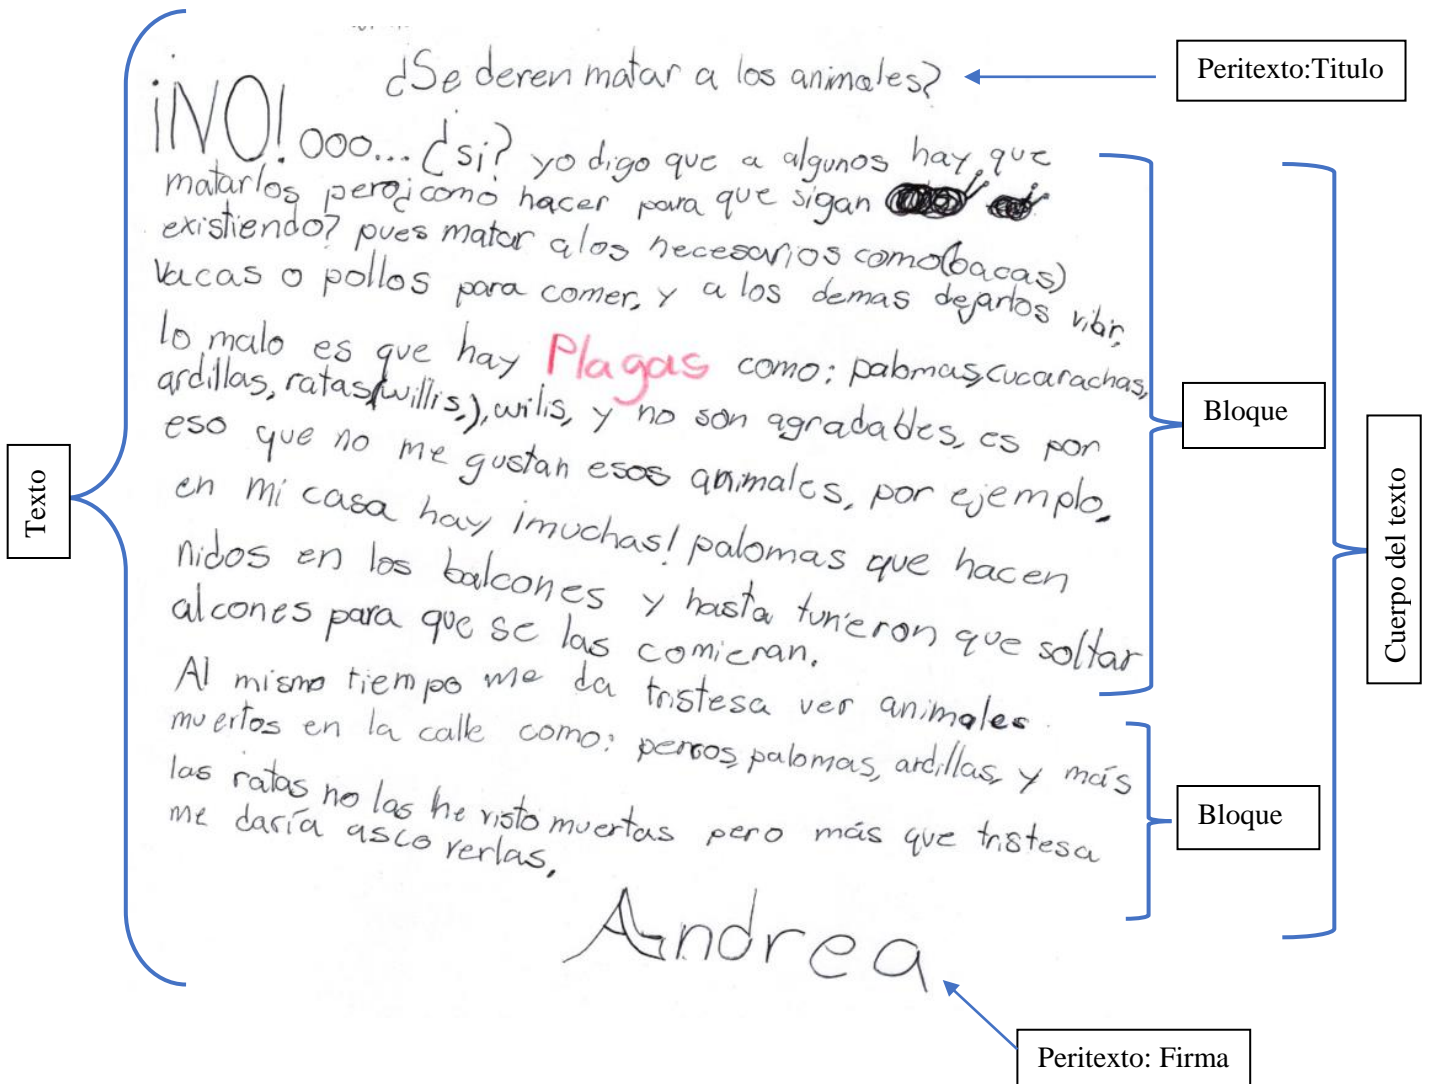 ¿Se deren matar a los animales?
Peritexto:Titulo
¡NO!ooo... ¿si? yo digo que a algunos hay que
matarlos pero¿como hacer para que sigan
existiendo? pues matar a los necesarios como(bacas)
vacas o pollos para comer, y a los demas dejarlos vibir,
lo malo es que hay Plagas como: palomas,cucarachas,
ardillas, ratas(willis,),wilis, y no son agradables, es por
eso que no me gustan esos animales, por ejemplo,
en mi casa hay ¡muchas! palomas que hacen
nidos en los balcones y hasta tuvieron que soltar
alcones para que se las comieran.
Al mismo tiempo me da tristesa ver animales
muertos en la calle como: perros, palomas, ardillas, y más
las ratas no las he visto muertas pero más que tristesa
me daría asco verlas.
Andrea
Texto
Bloque
Bloque
Cuerpo del texto
Peritexto: Firma